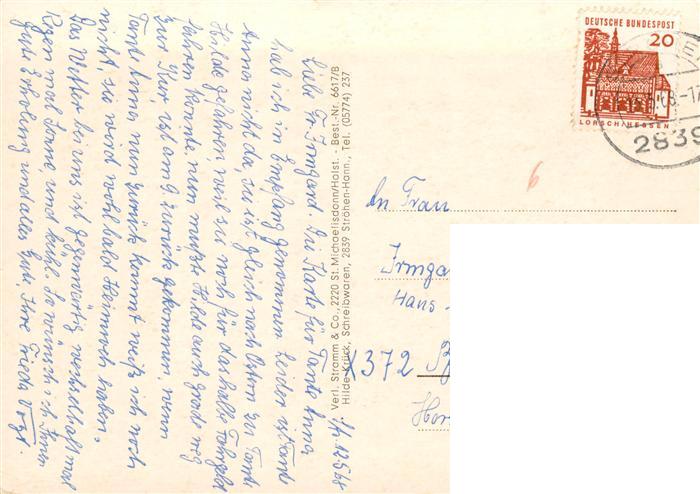 DEUTSCHE BUNDESPOST
20
LORSCH/HESSEN
2839
6
An Frau
Irmga
Hans
372
Hor
Verl. Stramm & Co., 2220 St. Michaelisdonn/Holst. - Best.-Nr. 6617/B
Hilde Krück, Schreibwaren, 2839 Ströhen-Hann., Tel. (05774) 237
12.5.68
Liebe Fr. Irmgard. Die Karte für Tante Anna
hab ich in Empfang genommen. Leider ist Tante
Anna nicht da, sie ist gleich nach Ostern zu Tante
Hilde gefahren, weil sie noch für das halbe Fahrgeld
fahren konnte. nun mußte Hilde auch grade weg
zur Kur, ist am 9. zurück gekommen. wann
Tante Anna nun zurück kommt weiß ich noch
nicht sie wird wohl bald Heimweh haben.
Das Wetter bei uns ist gegenwärtig wechselhaft mal
Regen mal Sonne, und kühl. So wünsch ich Ihnen
gute Erholung und alles Gute, Ihre Frieda Vogt.